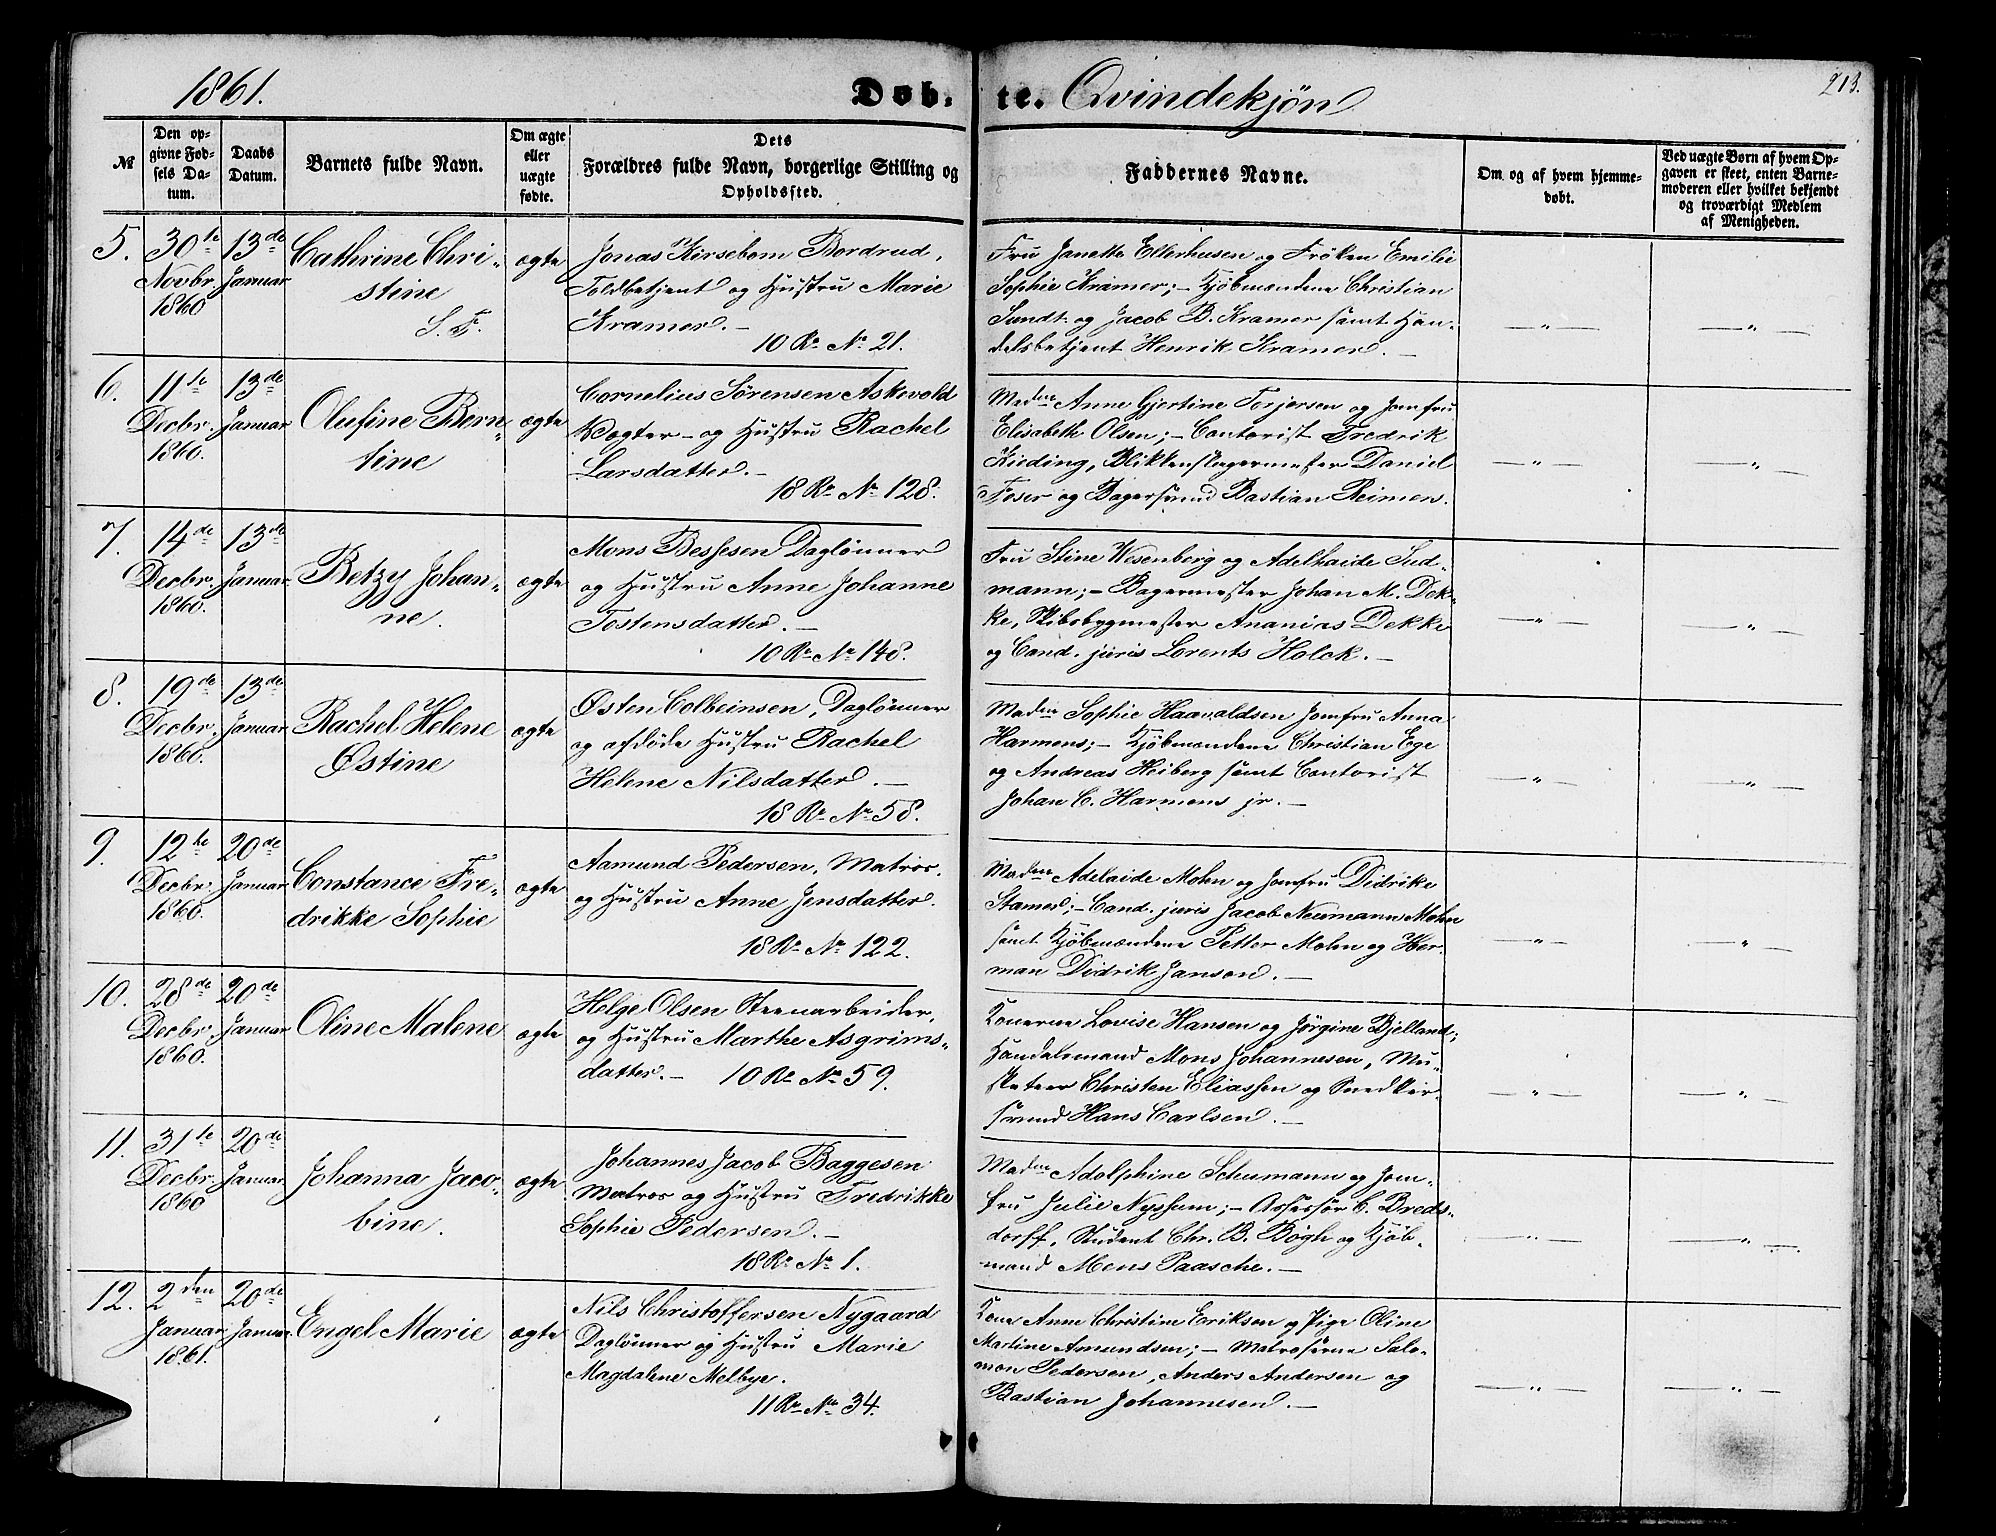 1861.
Døb-
te.
Qvindekjøn
213.
№
Den op-
givne Fød-
sels Da-
tum.
Daabs
Datum.
Barnets fulde Navn.
Om ægte
eller
uægte
fødte.
Dets
Forældres fulde Navn, borgerlige Stilling og
Opholdssted.
Faddernes Navne.
Om og af hvem hjemme-
døbt.
Ved uægte Børn af hvem Op-
gaven er skeet, enten Barne-
moderen eller hvilket bekjendt
og troværdigt Medlem
af Menigheden.
5.
30te
Novbr.
1860
13de
Januar
Cathrine Chri-
stine
S. F.
ægte
Jonas Kirsebom Bordrud,
Toldbetjent og Hustru Marie
Kramer. –
10 Rr. Nr. 21.
Fru Janette Ellerhusen og Frøken Emilie
Sophie Kramer; – Kjøbmændene Christian
Sundt og Jacob B. Kramer samt Han-
delsbetjent Henrik Kramer. –
– „ –
– „ –
6.
11te
Decbr.
1860.
13de
Januar
Olufine Bern-
tine
ægte
Cornelius Sørensen Askevold
Vægter – og Hustru Rachel
Larsdatter. –
18 Rr. Nr. 128.
Madme Anne Gjertine Torjersen og Jomfru
Elisabeth Olsen; – Contorist Fredrik
Kieding, Blikkenslagermester Daniel
Foser og Bagersvend Bastian Reimers.
– „ –
– „ –
7.
14de
Decbr.
1860.
13de
Januar.
Betzy Johan-
ne.
ægte
Mons Bessesen Daglønner
og Hustru Anne Johanne
Tostensdatter. –
10 Rr. Nr. 148.
Fru Stine Wesenberg og Adelhaide Sud-
mann; – Bagermester Johan M. Dek-
ke, Skibsbygmester Ananias Dekke
og Cand. juris Lorents Holck. –
– „ –
– „ –
8.
19de
Decbr.
1860.
13de
Januar
Rachel Helene
Østine
ægte
Østen Colbeinsen, Daglønner
og afdøde Hustru Rachel
Helene Nilsdatter. –
18 Rr. Nr. 58.
Madme Sophie Haavaldsen Jomfru Anna
Harmens; – Kjøbmændene Christian Ege
og Andreas Heiberg samt Contorist
Johan C. Harmens jr. –
– „ –
– „ –
9.
12te
Decbr.
1860.
20de
Januar
Constance Fre-
drikke Sophie
ægte
Aamund Pedersen, Matros.
og Hustru Anne Jensdatter.
18 Rr. Nr. 122.
Madme Adelaide Mohn og Jomfru Didrike
Stamer; – Cand. juris Jacob Neumann Mohn
samt Kjøbmændene Petter Mohn og Her-
man Didrik Janson. –
– „ –
– „ –
10.
28de
Decbr.
1860.
20de
Januar
Oline Malene
ægte
Helge Olsen Steenarbeider,
og Hustru Marthe Asgrims-
datter. – 10 Rr. Nr. 59.
Konerne Lovise Hansen og Jørgine Bjelland;
Handelsmand Mons Johannesen, Mu-
sketeer Christen Eliassen og Snedker-
svend Hans Carlsen. –
– „ –
– „ –
11.
31te
Decbr.
1860
20de
Januar.
Johanna Jaco-
bine.
ægte
Johannes Jacob Baggesen
Matros og Hustru Fredrikke
Sophie Pedersen. –
18 Rr. Nr. 1.
Madme Adolphine Schumann og Jom-
fru Julie Nyssum; – Assessor C. Breds-
dorff, Student Chr. B. Bøgh og Kjøb-
mand Mens Paasche. –
– „ –
– „ –
12.
2den
Januar
1861.
20de
Januar.
Engel Marie
ægte
Nils Christoffersen Nygaard
Daglønner og Hustru Marie
Magdalene Melbye.
11 Rr. Nr. 34.
Kone Anne Christine Eriksen og Pige Oline
Martine Amundsen; – Matroserne Salo-
mon Pedersen, Anders Andersen og
Bastian Johannesen. –
– „ –
– „ –